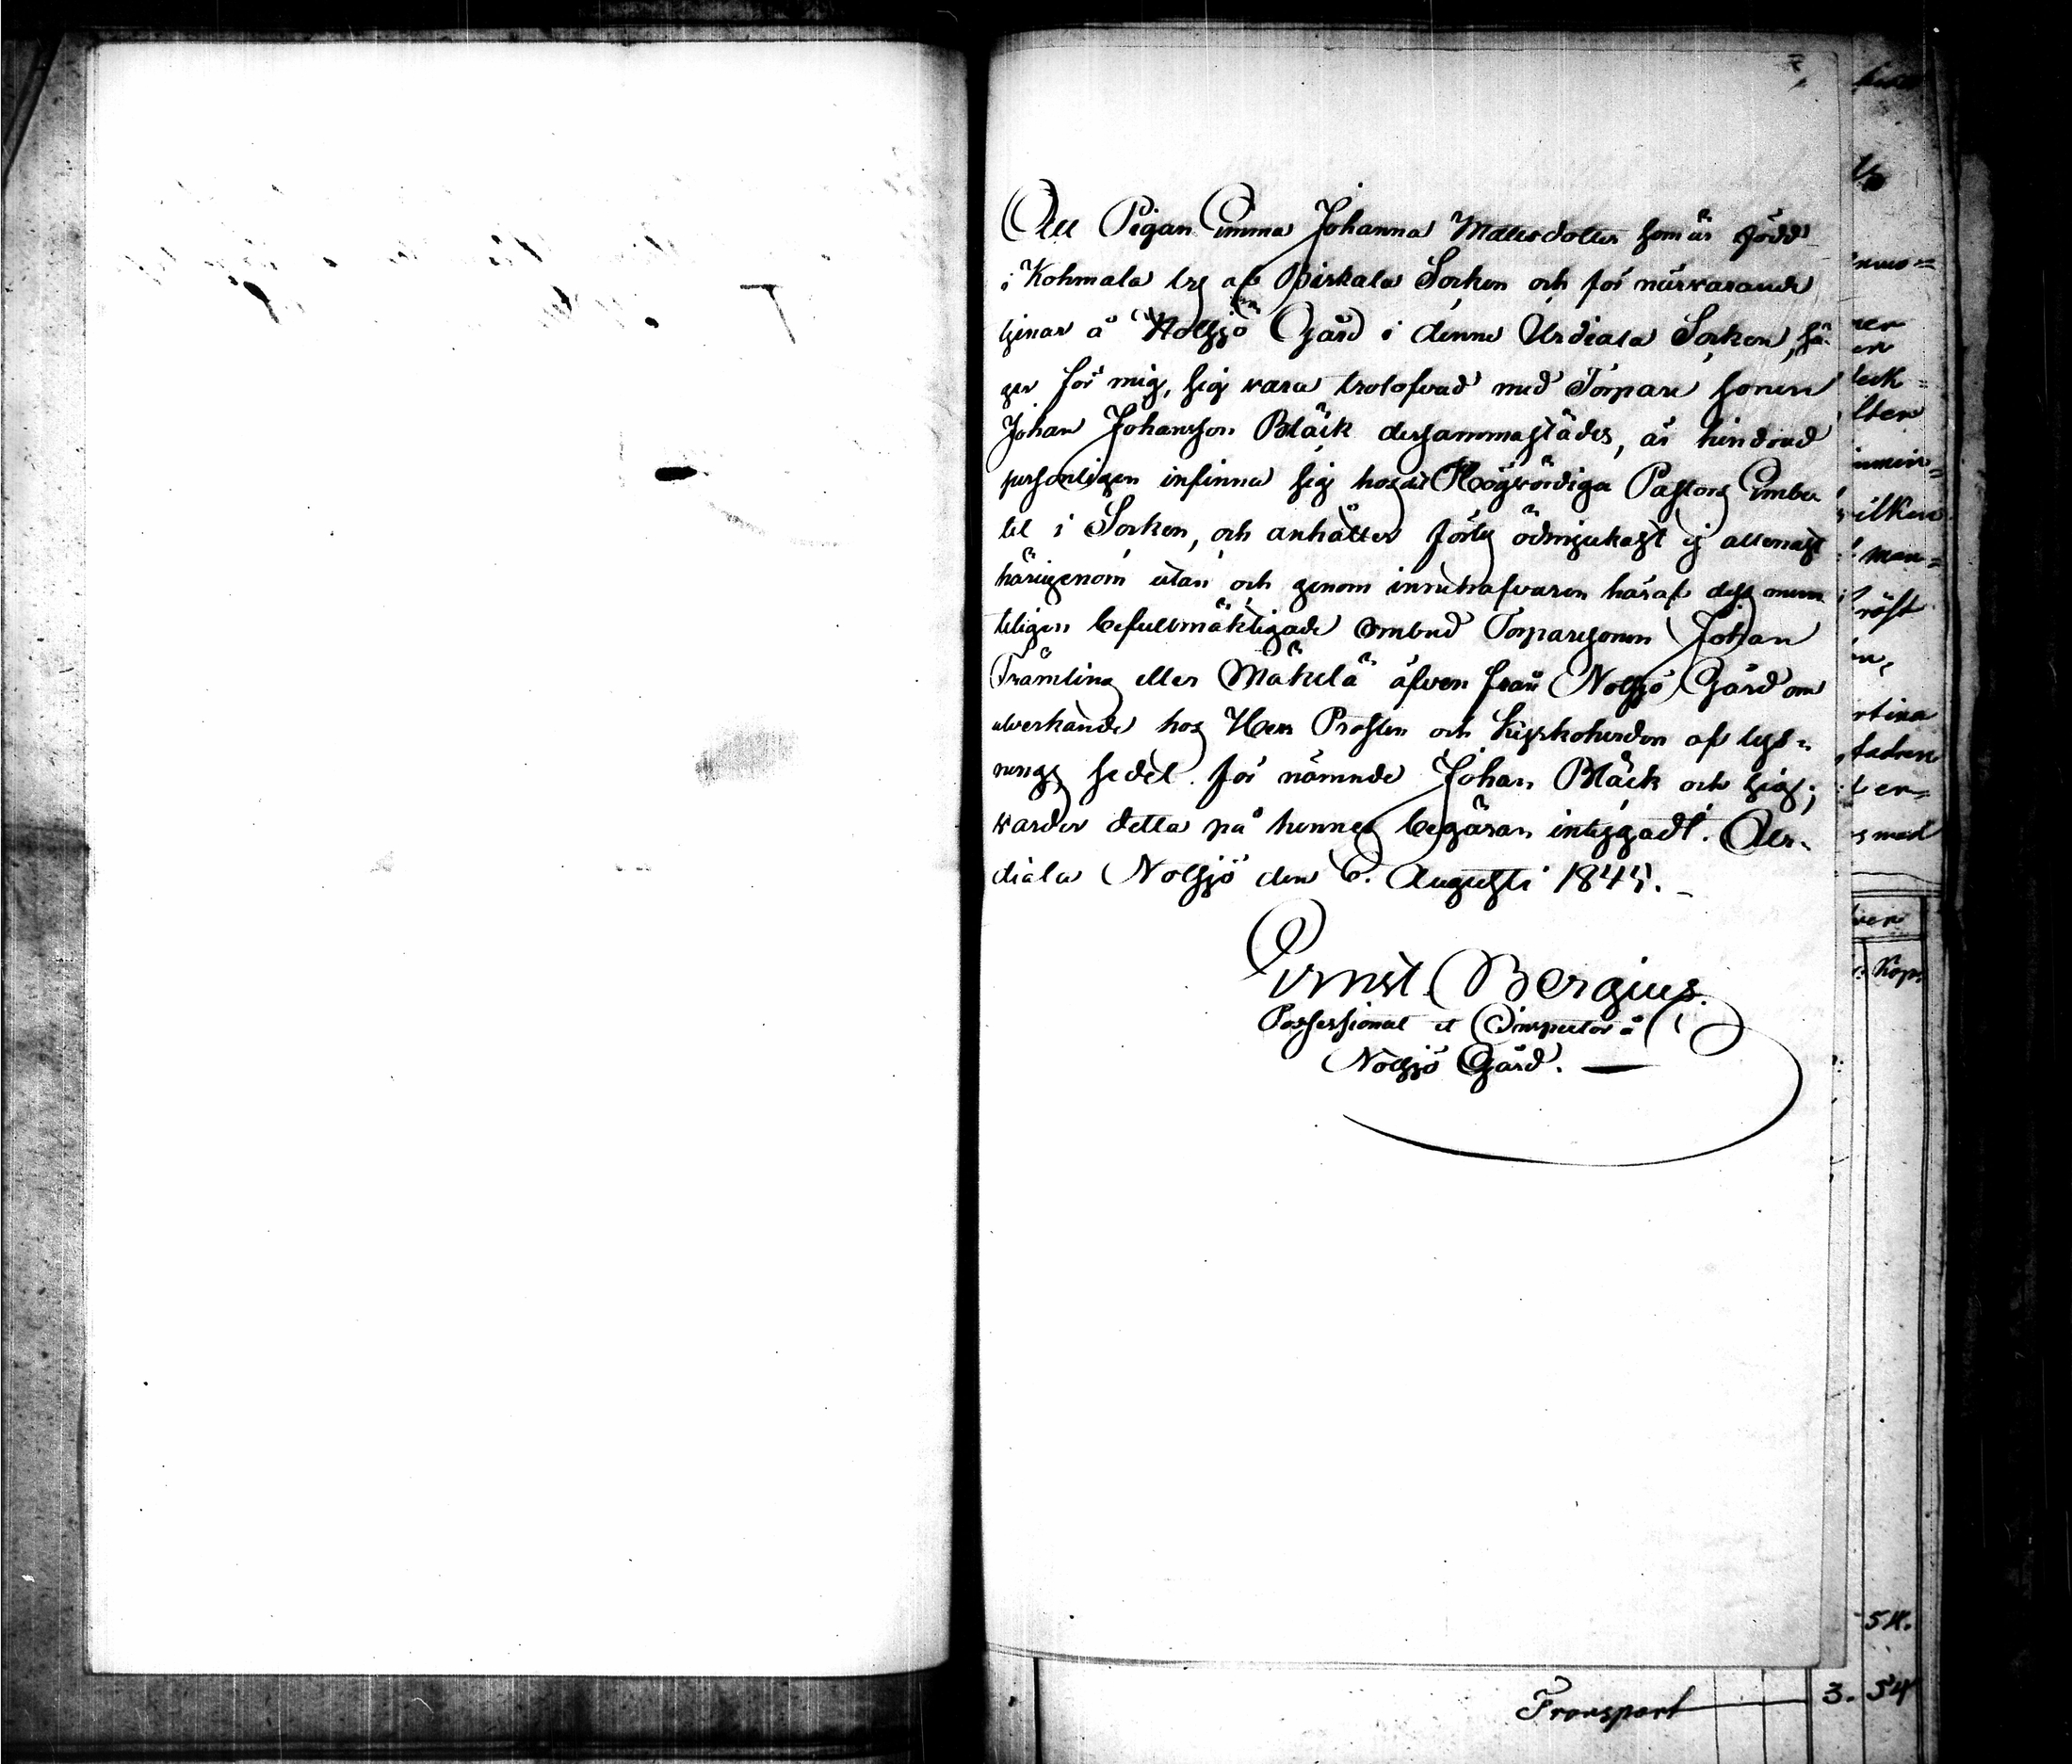 Att Pigan Emma Johanna Mattsdotter som är född
i Kohmala by af Birkala Socken och för närvarande
tjenar å Nolsjö Gård i denne Urdiala Socken, sä-
ger för mig, sig vara trolofvad med Torpare sonen
Johan Johansson Bläck dersammastädes, är hindrad
personligen infinna sig hos det Högvördiga Pastors Embe
tet i Socken, och anhåller förty ödmjukast ej allenast
härigenom utan och genom innehafvaren häraf dess munt
teligen befullmäktigade ombud Torparesonen Johan
Främling eller Mäkelä äfven från Nolsjö Gård om
utverkande hos Herr Prosten och Kyrkoherden af lys-
nings sedel för nämnde Johan Bläck och sig;
varder detta på hennes begäran intygadt. Ur-
diala Nolsjö den 6. Augusti 1845.
Ernst Bergius.
Possessionat et Inspector å
Nolsjö Gård.
ilken
man-
röst
rtina
er-
med
Kop.
54.
Transport 3. 54